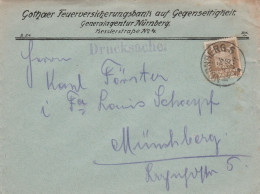 Gothaer Feuerversicherungsbank auf Gegenseitigkeit.
Generalagentur Nürnberg.
Hesslerstraße No 4
Drucksache.
NÜRNBERG 1
Herrn
Karl Förster
i Fa Louis Scharpf
Münchberg.